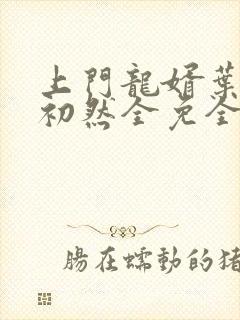 上門龍婿葉
初然全免全
腸在蠕動的猪